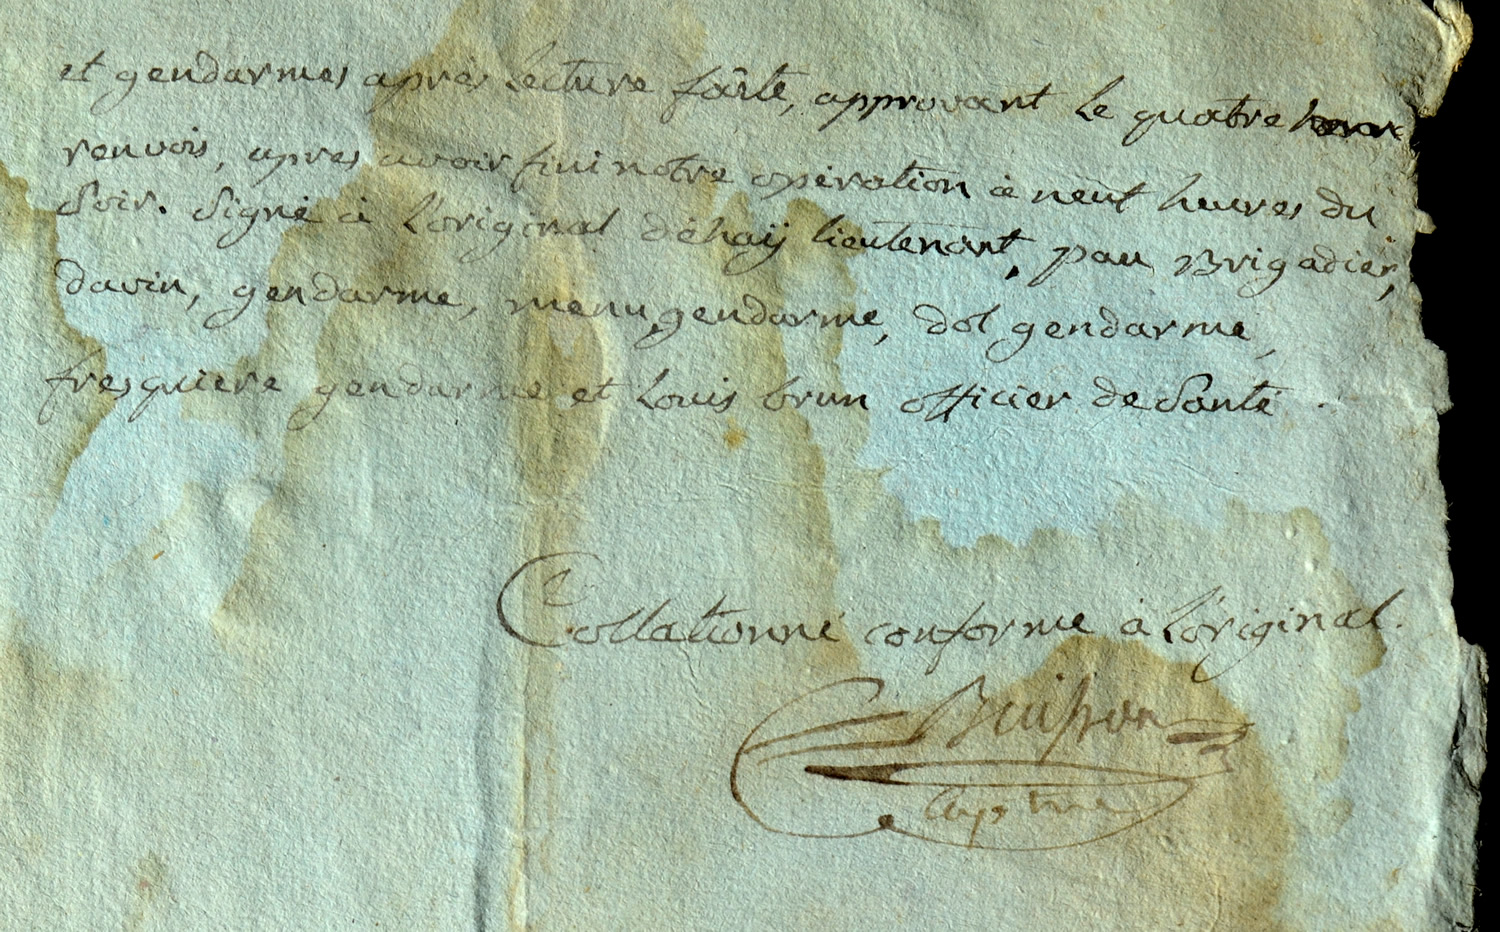 et gendarmes après lecture faite, approuvant le quatre
renvois, apres avoir fini notre opération à neuf heures du
Soir. Signé à L'original déhaÿ lieutenant, pau Brigadier,
davin, gendarme, menu, gendarme, dol gendarme,
fresquiere gendarme et Louis brun officier de Santé
Collationné conforme à L'original.
Buisson